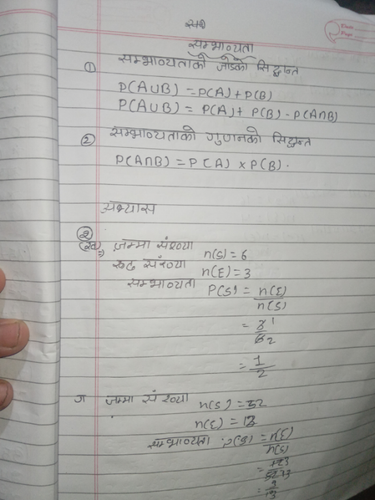 सम्भाव्यता
① सम्भाव्यताको जोडको सिद्धान्त
P(A∪B) = P(A) + P(B)
P(A∪B) = P(A) + P(B) - P(A∩B)
② सम्भाव्यताको गुणनको सिद्धान्त
P(A∩B) = P(A) × P(B).
अभ्यास
②
जम्मा संख्या n(S) = 6
रुढ संख्या n(E) = 3
सम्भाव्यता P(S) = n(E)/n(S)
= 3/6
= 1/2
ग जम्मा संख्या n(S) = 52
n(E) = 13
सम्भाव्यता P(S) = n(E)/n(S)